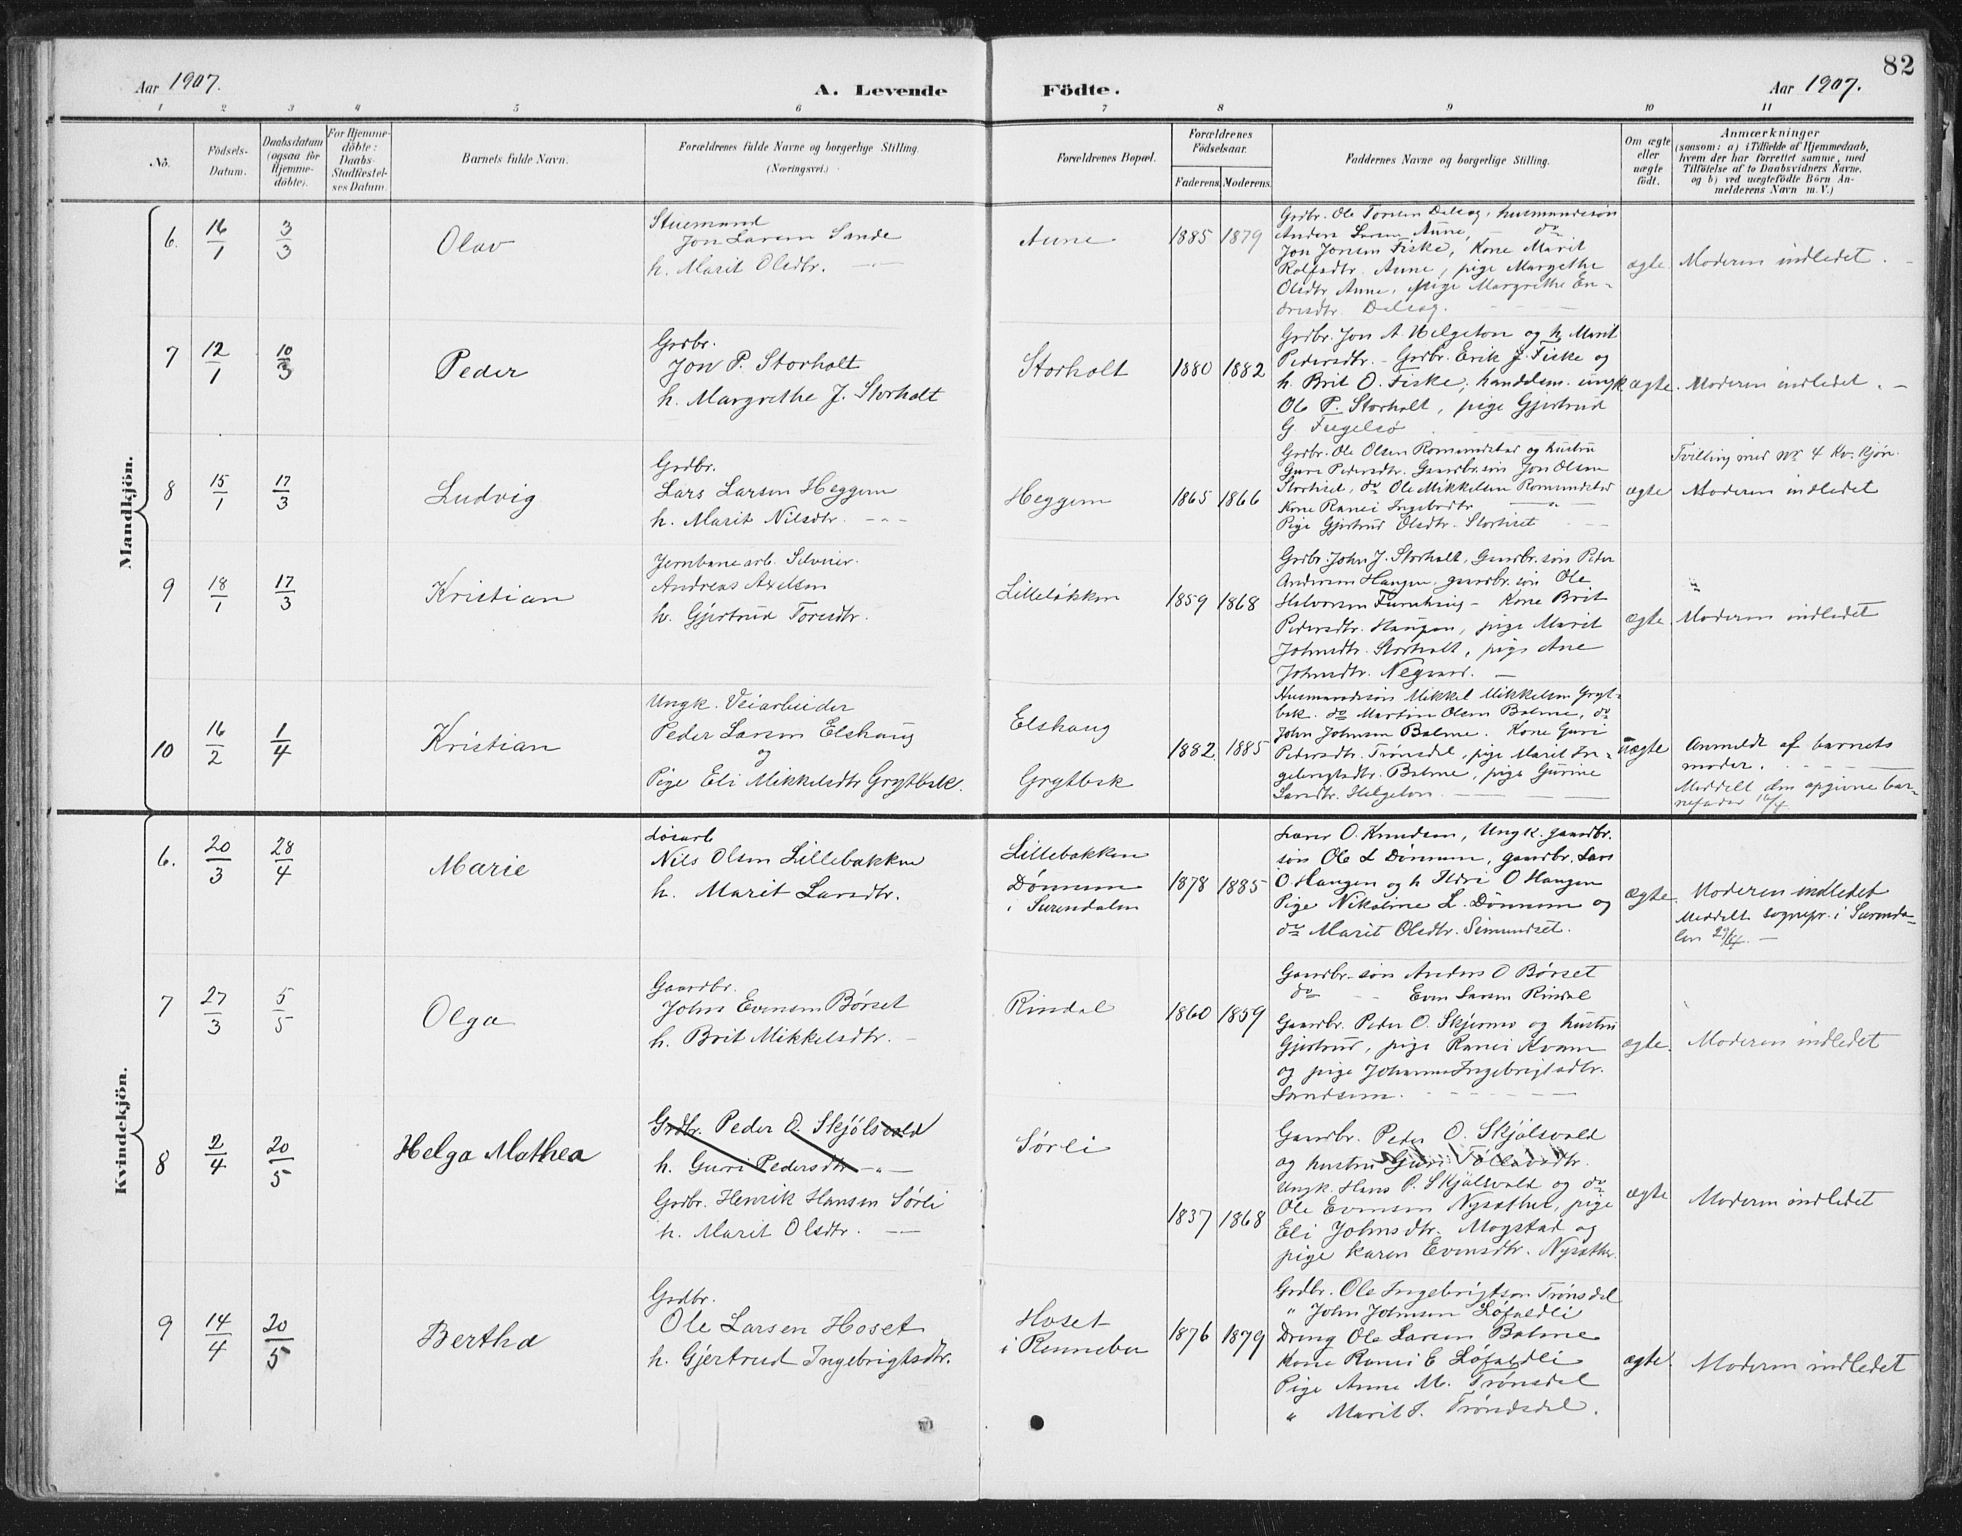 82
Aar 1907.
A. Levende Födte.
Aar 1907.
1 2 3 4 5 6 7 8 9 10 11
No.
Födsels-
Datum.
Daabsdatum
(ogsaa for
Hjemme-
döbte).
For Hjemme-
döbte:
Daabs-
Stadfæstel-
ses Datum.
Barnets fulde Navn.
Forældrenes fulde Navne og borgerlige Stilling.
(Næringsvei.)
Forældrenes Bopæl.
Forældrenes
Födselsaar.
Faderens. Moderens.
Faddernes Navne og borgerlige Stilling.
Om ægte
eller
uægte
födt.
Anmærkninger
(saasom: a) i Tilfælde af Hjemmedaab,
hvem der har forrettet samme, med
Tilföielse af to Daabsvidners Navne.
og b) ved uægtefödte Börn An-
melderens Navn m. V.)
Mandkjön.
6. 16/1 3/3
Olav
Jon Larsen Sande
h. Marit Olsdtr. —
Aune
1885 1879
Grdbr. Ole Torsen Delsag, husmandssøn
Anders Larsen Aune, do
Jon Jonsen Fiske, Kone Marit
Rolfsdtr. Aune, pige Margrethe
Olsdtr Aune, pige Margrethe En-
dresdtr. Delsag.
ægte
Moderen indledet. -
7 12/1 10/3
Peder
Grdbr.
Jon P. Storholt
h. Margrethe J. Storholt
Storholt
1880 1882
Grdbr. Jon A Helgeton og h. Marit
Pedersdtr. - Grdbr. Erik J. Fiske og
h. Brit O. Fiske, handelsm. ungk.
Ole P. Storholt, pige Gjertrud
G Fugelsø
ægte.
Moderen indledet. -
8 15/1 17/3
Ludvig
Grdbr.
Lars Larsen Heggem
h. Marit Nilsdtr. - - -
Heggem
1865 1866
Grdbr. Ole Olsen Romundstad og hustru
Guri Pedersdtr. Gaardbr. søn Jon Olsen
Stortiset, do Ole Mikkelsen Romundstad
Kone Ranei Ingebrdtr
Pige Gjertrud Olsdtr. Stortiset
ægte
Tvilling med No 4 Kv. Kjøn.
Moderen indledet
9 18/1 17/3
Kristian
Andreas Axelsen
h. Gjertrud Toresdtr.
Lilleløkken
1859 1868
Grdbr. John J. Storholt, Gaardbr. søn Peder
Andersen Haugen, gaardbr. søn Ole
Halvorsen - Kone Brit
Pedersdtr. Haugen, pige Marit
Johnsdtr. Storholt, pige Ane
Johnsdtr. Negaard. —
ægte
Moderen indledet
10 16/2 1/4
Kristian
Ungk. Veiarbeider
Peder Larsen Elshaug
og
Pige Eli Mikkelsdtr Grytbak.
Elshaug
Grytbak
1882. 1885
Husmandssøn Mikkel Mikkelsen Gryt-
bak. do Martin Olsen Bolme, do
John Johnsen Bolme. Kone Guri
Pedersdtr. Trønsdal, pige Marit In-
gebrigtsdtr. Bolme, pige Gurine
Larsdtr. Helgeton.
uægte
Anmeldt af barnets
moder.
Meddelt den opgivne bar-
nefader 16/4
Kvindekjön.
6. 20/3 28/4
Marie
Løsarb
Nils Olsen Lillebakken
h. Marit Larsdtr.
Lillebakken
Dønnum
i Surendalen
1878 1885
O. Knudsen, Ungk. gaardbr.
søn Ole L Dønnum, gaardbr. Lars
O Haugen og h Ildri O Haugen
Pige Nikoline L. Dønnum og
do Marit Olsdtr. Simundset.
ægte.
Moderen indledet
Meddelt sognepr. i Surenda-
len 29/4. -
7 27/3 5/5
Olga
Gaardbr.
John Evensen Børset
h. Brit Mikkelsdtr. -
Rindal
1860 1859
Gaardbr. søn Anders O Børset
do - Even Larsen Rindal
Gaardbr. Peder O. Skjermo og hustru
Gjertrud, pige Ranei Kvam
og pige Johanna Ingebrigtsdtr.
Landsem.
ægte.
Moderen indledet
8 2/4 20/5
Helga Mathea
Grdbr. Peder O. Skjølsvold
h. Guri Pedersdtr - -
Grdbr. Henrik Hansen Sørli
h. Marit Olsdtr. —
Sørli
1837 1868
Gaardbr. Peder O. Skjølsvold
og hustru Guri
Ungk. Hans P. Skjølsvold og do
Ole Evensen Nysæther, pige
Eli Johnsdtr. Mogstad og
pige Karen Evensdtr. Nysæther.
ægte
Moderen indledet
9 14/4 20/5
Bertha
Grdbr.
Ole Larsen Hoset
h. Gjertrud Ingebrigtsdtr.
Hoset
i Rennebu
1876 1879
Grdbr. Ole Ingebrigtsen Trønsdal
" John Johnsen Løfaldli
Dreng Ole Larsen Bolme
Kone Ranei E Løfaldli
Pige Anne M. Trønsdal
" Marit I. Trøndsdal.
ægte.
Moderen indledet